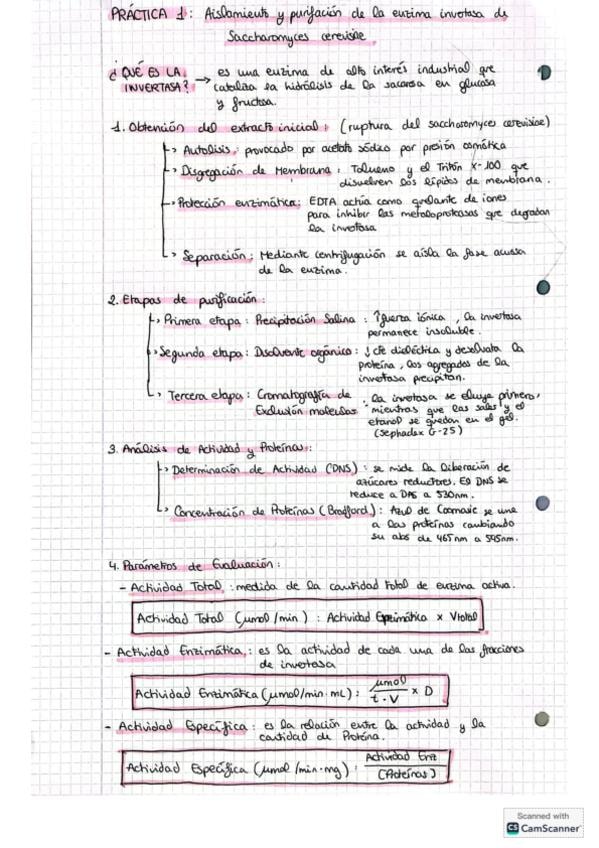 PRÁCTICA 1: Aislamiento y purifación de la enzima invertasa de
Saccharomyces cerevisiae.
¿QUÉ ES LA → es una enzima de alto interés industrial que
INVERTASA? cataliza la hidrólisis de la sacarosa en glucosa
y fructosa.
1. Obtención del extracto inicial: (ruptura del saccharomyces cerevisiae)
↳ Autolisis: provocado por acetato sódico por presión osmótica
↳ Disgregación de Membrana: Tolueno y el Tritón X-100 que
disuelven los lípidos de membrana.
↳ Protección enzimática: EDTA actúa como quelante de iones
para inhibir las metaloproteasas que degradan
la invertasa
↳ Separación: Mediante centrifugación se aísla la fase acuosa
de la enzima.
2. Etapas de purificación:
↳ Primera etapa: Precipitación Salina: ↑fuerza iónica, la invertasa
permanece insoluble.
↳ Segunda etapa: Disolvante orgánico: ↓ cte dieléctrica y desolvata la
proteína, los agregados de la
invertasa precipitan.
↳ Tercera etapa: Cromatografía de : la invertasa se eluye primero,
Exclusión molecular mientras que las sales y el
etanol se quedan en el gel.
(Sephadex G-25)
3. Análisis de Actividad y Proteínas:
↳ Determinación de Actividad (DNS): se mide la liberación de
azúcares reductores. El DNS se
reduce a DAS a 530nm.
↳ Concentración de Proteínas (Bradford): Azul de Coomasie se une
a las proteínas cambiando
su abs de 465nm a 595nm.
4. Parámetros de Evaluación:
- Actividad Total: medida de la cantidad total de enzima activa.
Actividad Total (μmol/min): Actividad Enzimática x Vtotal
- Actividad Enzimática: es la actividad de cada una de las fracciones
de invertasa
Actividad Enzimática (μmol/min·mL): μmol / t·V x D
- Actividad Específica: es la relación entre la actividad y la
cantidad de Proteína.
Actividad Específica (μmol/min·mg): Actividad Enz / [Proteínas]
Scanned with
CS CamScanner